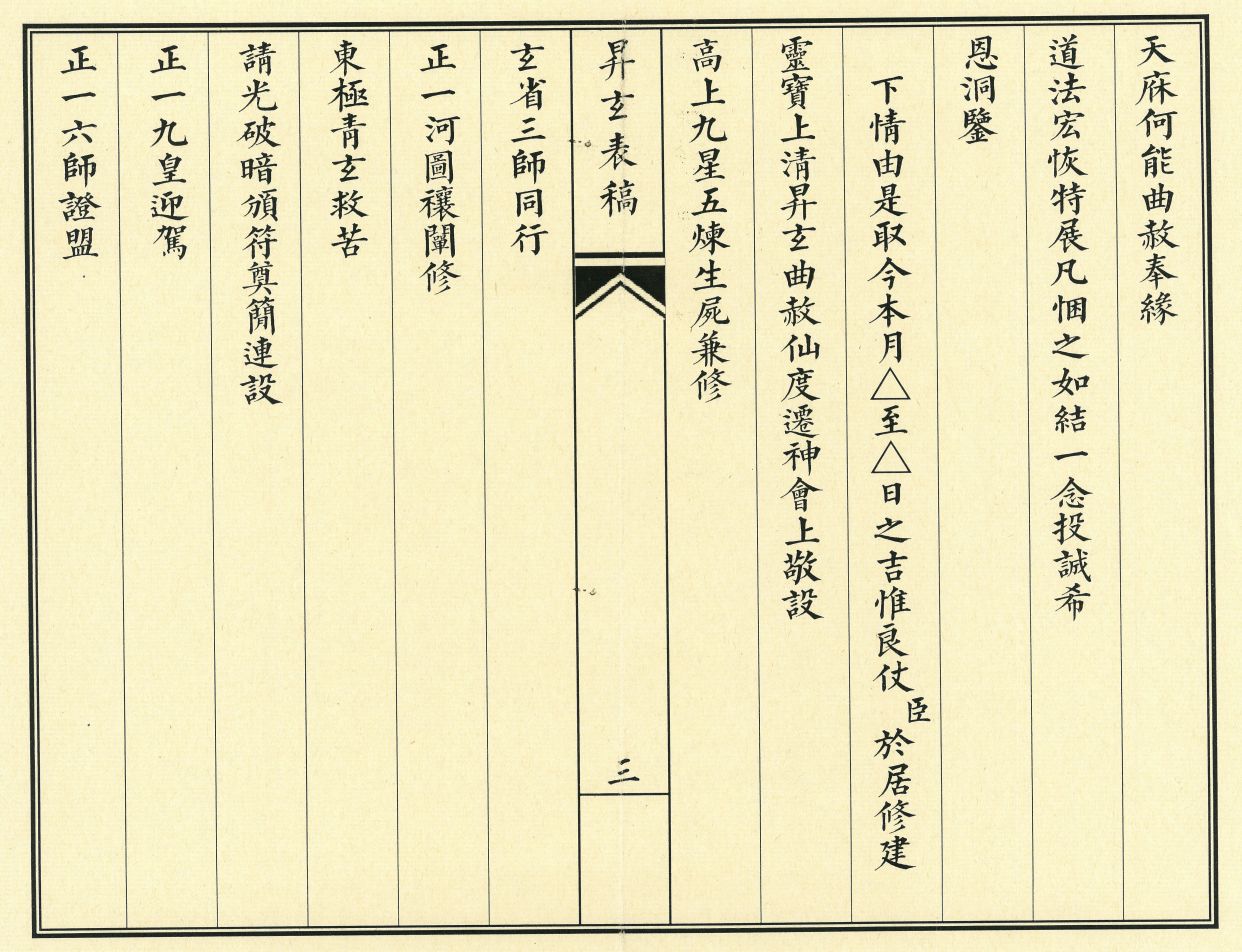 天庥何能曲赦奉緣
道法宏恢特展凡悃之如結一念投誠希
恩洞鑒
下情由是取今本月△至△日之吉惟良仗臣於居修建
靈寶上清昇玄曲赦仙度遷神會上敬設
高上九星五煉生屍兼修
昇玄表稿
三
玄省三師同行
正一河圖禳闡修
東極青玄救苦
請光破暗頒符奠簡連設
正一九皇迎駕
正一六師證盟